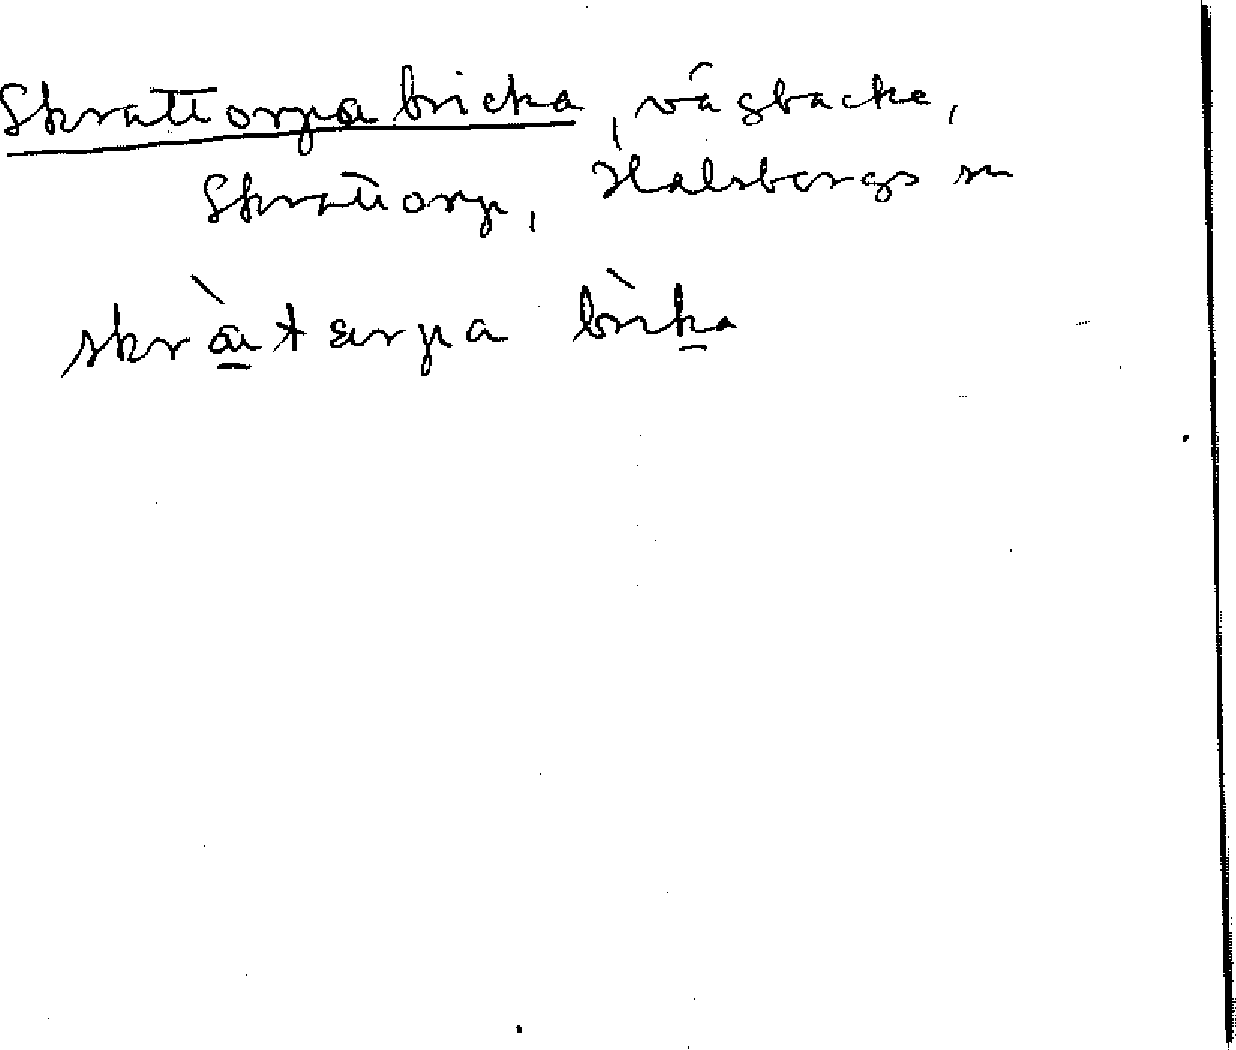 Skrattorpabricka, vägbacke,
Skrattorp, Hallsbergs sn
skràtærpa brìka